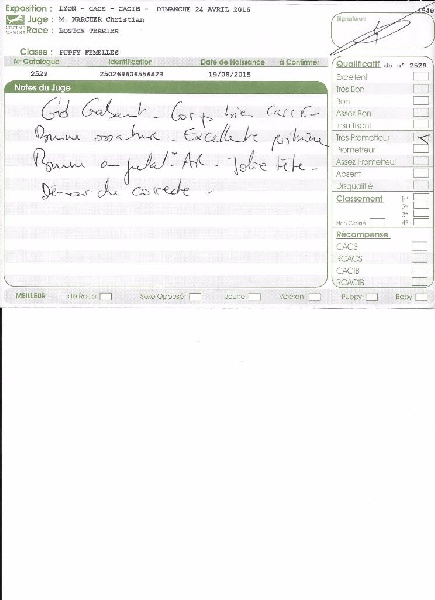 Exposition : LYON - CACS - CACIB - DIMANCHE 24 AVRIL 2016
Juge : M. KARCHER Christian
Race : BOSTON TERRIER
Signature
Classe : PUPPY FEMELLES
N° Catalogue Identification Date de Naissance à Confirmer
2529 19/08/2015
Notes du Juge
Gd Gabarit - Corps bien
Bonne ossature - Excellente poitrine
Bonne Arr - Jolie tête -
Démarche correcte -
Qualificatif du n° 2529
Excellent
Très Bon
Bon
Assez Bon
Insuffisant
Très Prometteur
Prometteur
Assez Prometteur
Absent
Disqualifié
Classement 1er
2e
3e
Non Classé 4e
Récompense
CACS
RCACS
CACIB
RCACIB
MEILLEUR de Race Sexe Opposé Jeune Vétéran Puppy Baby